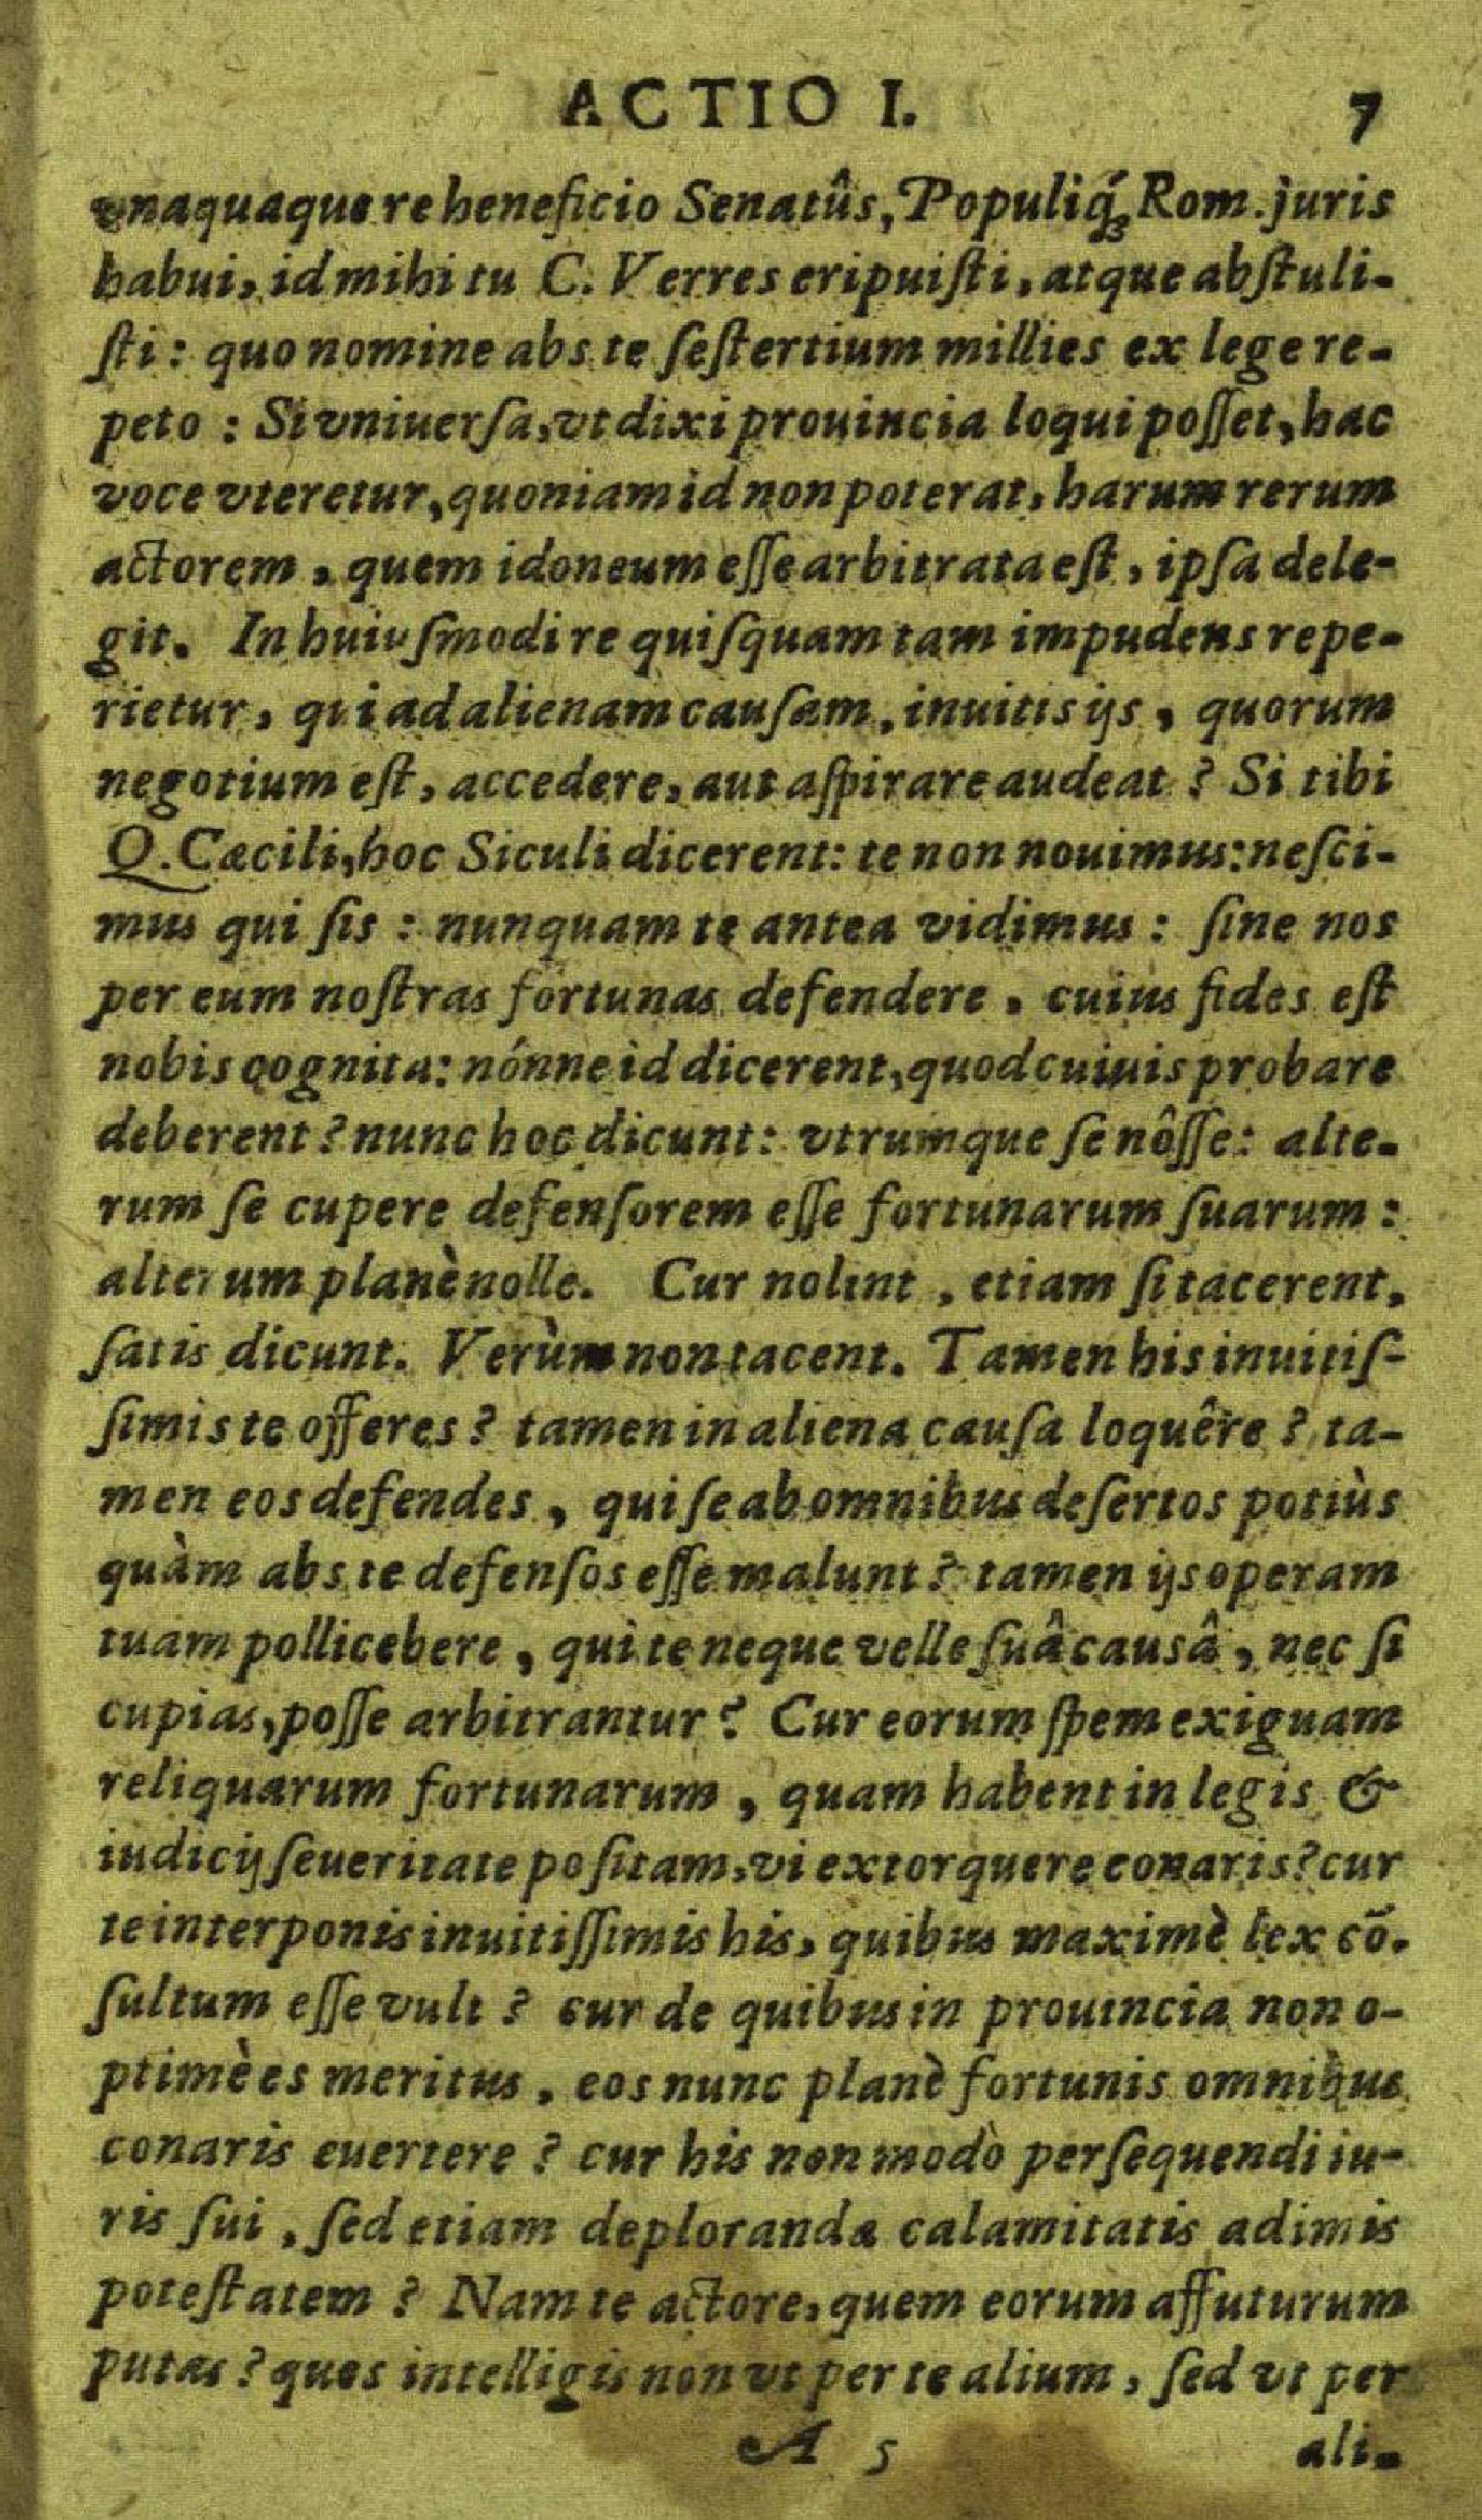 ACTIO I. 7
vnaquaque re beneficio Senatûs, Populiq́ꝫ Rom. juris
habui, id mihi tu C. Verres eripuiſti, atque abſtuli-
ſti: quo nomine abs te ſeſtertium millies ex lege re-
peto : Si vniuerſa, vt dixi prouincia loqui poſſet, hac
voce vteretur, quoniam id non poterat, harum rerum
actorem, quem idoneum eſſe arbitrata eſt, ipſa dele-
git. In huiuſmodi re quiſquam tam impudens repe-
rietur, qui ad alienam cauſam, inuitis ijs, quorum
negotium eſt, accedere, aut aſpirare audeat ? Si tibi
Q. Cæcili, hoc Siculi dicerent: te non nouimus: neſci-
mus qui ſis : nunquam te antea vidimus : ſine nos
per eum noſtras fortunas defendere, cuius fides eſt
nobis cognita: nónne id dicerent, quod cuiuis probare
deberent ? nunc hoc dicunt: vtrumque ſe nôſſe: alte-
rum ſe cupere defenſorem eſſe fortunarum ſuarum :
alterum planè nolle. Cur nolint, etiam ſi tacerent,
ſatis dicunt. Verùm non tacent. Tamen his inuitiſ-
ſimis te offeres ? tamen in aliena cauſa loquêre ? ta-
men eos defendes, qui ſe ab omnibus deſertos potiùs
quàm abs te defenſos eſſe malunt ? tamen ijs operam
tuam pollicebere, qui te neque velle ſuâ causâ, nec ſi
cupias, poſſe arbitrantur ? Cur eorum ſpem exiguam
reliquarum fortunarum, quam habent in legis &
iudicij ſeueritate poſitam, vi extorquere conaris? cur
te interponis inuitiſſimis his, quibus maximè lex cō-
ſultum eſſe vult ? cur de quibus in prouincia non o-
ptimè es meritus, eos nunc planè fortunis omnibus
conaris euertere ? cur his non modò perſequendi iu-
ris ſui, ſed etiam deplorandæ calamitatis adimis
poteſtatem ? Nam te actore, quem eorum affuturum
putas ? quos intelligis non vt per te alium, ſed vt per
A 5 ali-